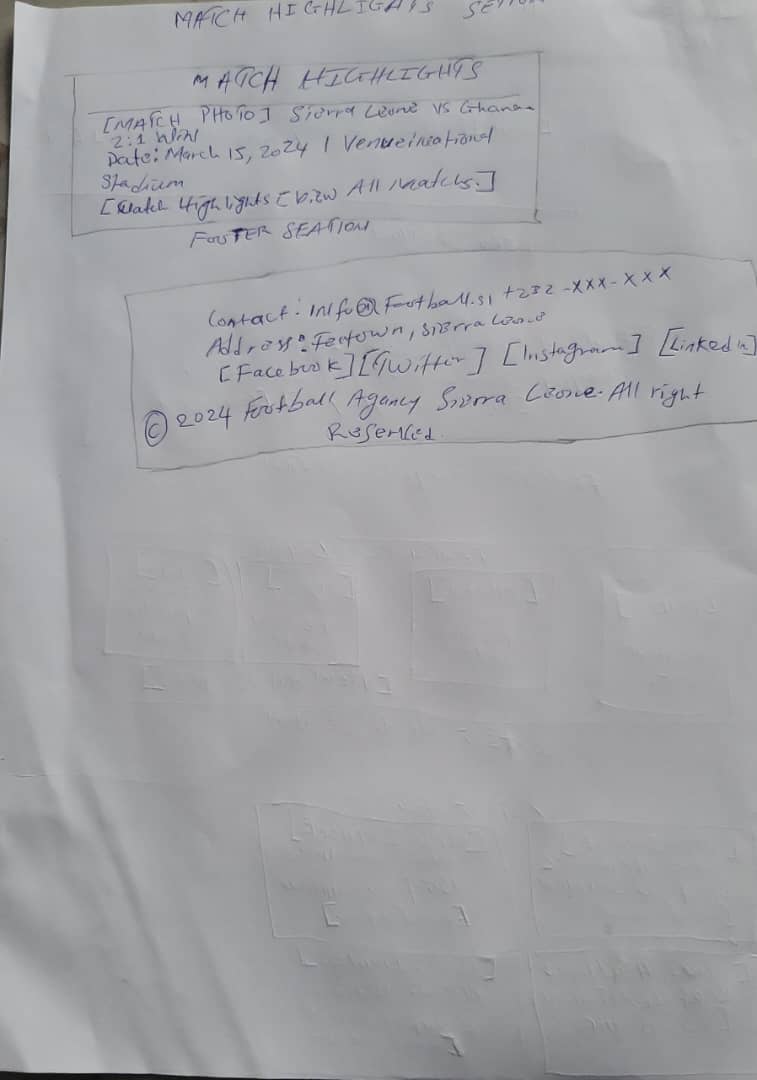 MATCH HIGHLIGHTS SETION
MATCH HIGHLIGHTS
[MATCH PHOTO] Sierra Leone VS Ghana
2:1 WIN
Date: March 15, 2024 | Venue: national
Stadium
[Watch Highlights [View All Matchs.]
FOOTER SEATION
Contact: Info@Football.sl +232-XXX-XXX
Address: Feetown, Sierra Leone
[Facebook] [Twitter] [Instagram] [Linkedin]
© 2024 Football Agancy Sierra Leone. All right
Reserved.